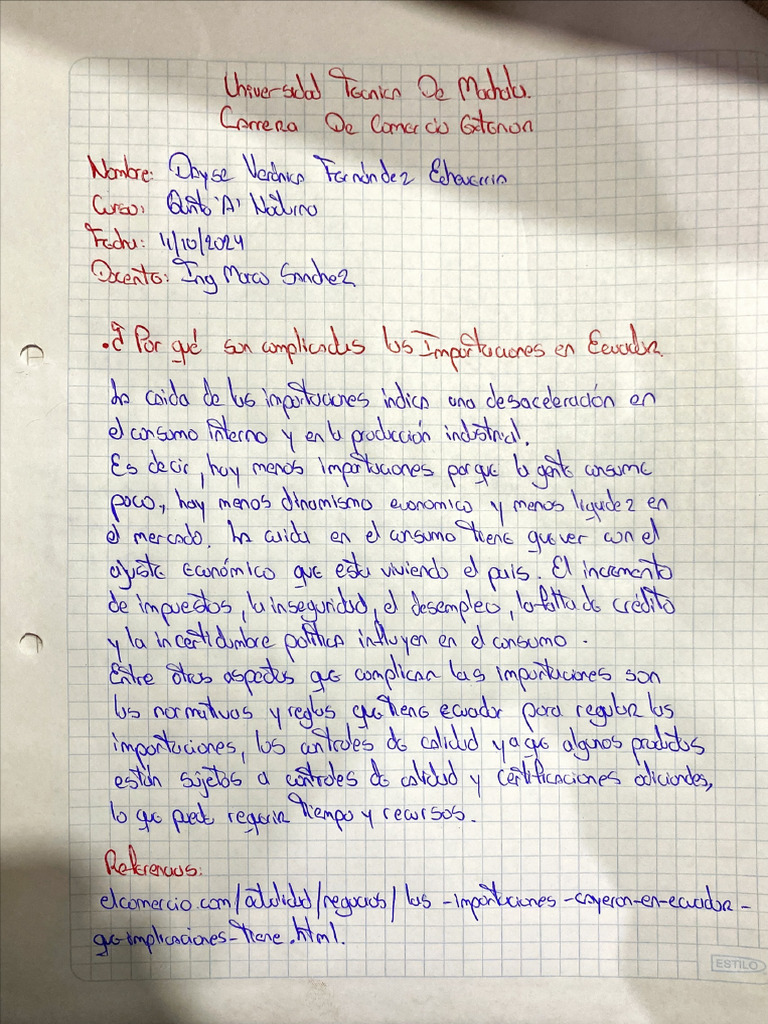 Universidad Tecnica De Machala.
Carrera De Comercio Exterior
Nombre: Dayse Verónica Fernández Echeverria
Curso: Quinto 'A' Nocturno
Fecha: 11/10/2024
Docente: Ing Marco Sanchez
• ¿Por qué son complicadas las Importaciones en Ecuador.
La caida de las importaciones indica una desaceleración en
el consumo interno y en la producción industrial.
Es decir, hay menos importaciones porque la gente consume
poco, hay menos dinamismo economico y menos liquidez en
el mercado. La caida en el consumo tiene que ver con el
ajuste económico que esta viviendo el país. El incremento
de impuestos, la inseguridad, el desempleo, la falta de crédito
y la incertidumbre politica influyen en el consumo.
Entre otros aspectos que complican las importaciones son
las normativas y reglas que tiene ecuador para regular las
importaciones, los controles de calidad ya que algunos productos
están sujetos a controles de calidad y certificaciones adicionales,
lo que puede requerir tiempo y recursos.
Referencias:
elcomercio.com/actualidad/negocios/las-importaciones-cayeron-en-ecuador-
que-implicaciones-tiene.html.
ESTILO